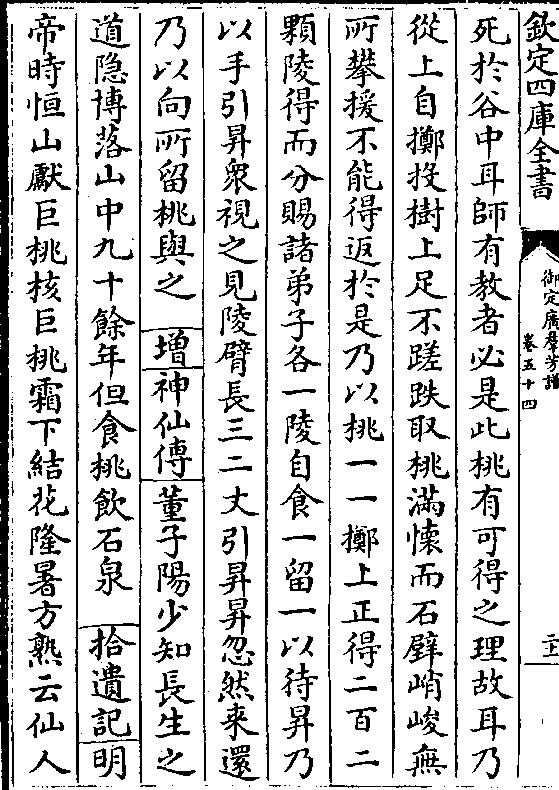 欽定四庫全書
御定廣羣芳譜
卷五十四
二十
死於谷中耳師有教者必是此桃有可得之理故耳乃
從上自擲投樹上足不蹉跌取桃滿懷而石壁峭峻無
所攀援不能得返於是乃以桃一一擲上正得二百二
顆陵得而分賜諸弟子各一陵自食一留一以待昇乃
以手引昇衆視之見陵臂長三二丈引昇昇忽然来還
乃以向所留桃與之 增神仙傳 董子陽少知長生之
道隐博落山中九十餘年但食桃飲石泉 拾遺記 明
帝時恒山獻巨桃核巨桃霜下結花隆暑方熟云仙人